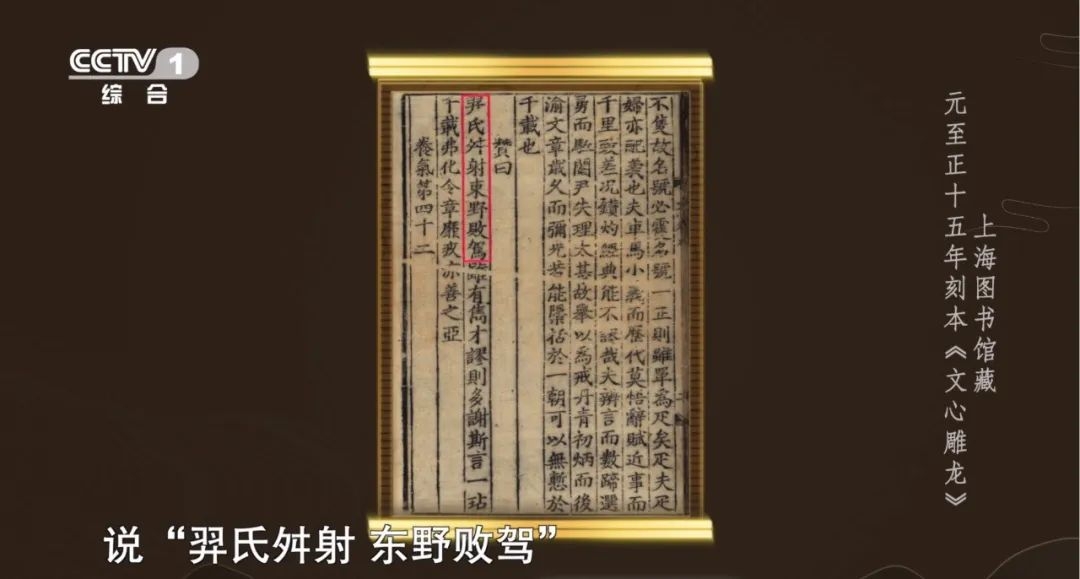 CCTV 1
综合
不隻故名號必雙名號一正則雖單為疋矣疋夫疋
婦亦配義也夫車馬小義而歷代莫悟辭賦近事而
千里致差况鑽灼經典能不謬哉夫辨言而數蹄選
勇而驅閹尹失理太甚故舉以為戒丹青初炳而後
渝文章歲久而彌光若能檃括於一朝可以無慙於
千載也
贊曰
羿氏舛射東野敗駕雖有儁才謬則多謝斯言一玷
千載弗化令章靡疚亦善之亞
養氣第四十二
上海图书馆藏
元至正十五年刻本《文心雕龙》
说“羿氏舛射 东野败驾”